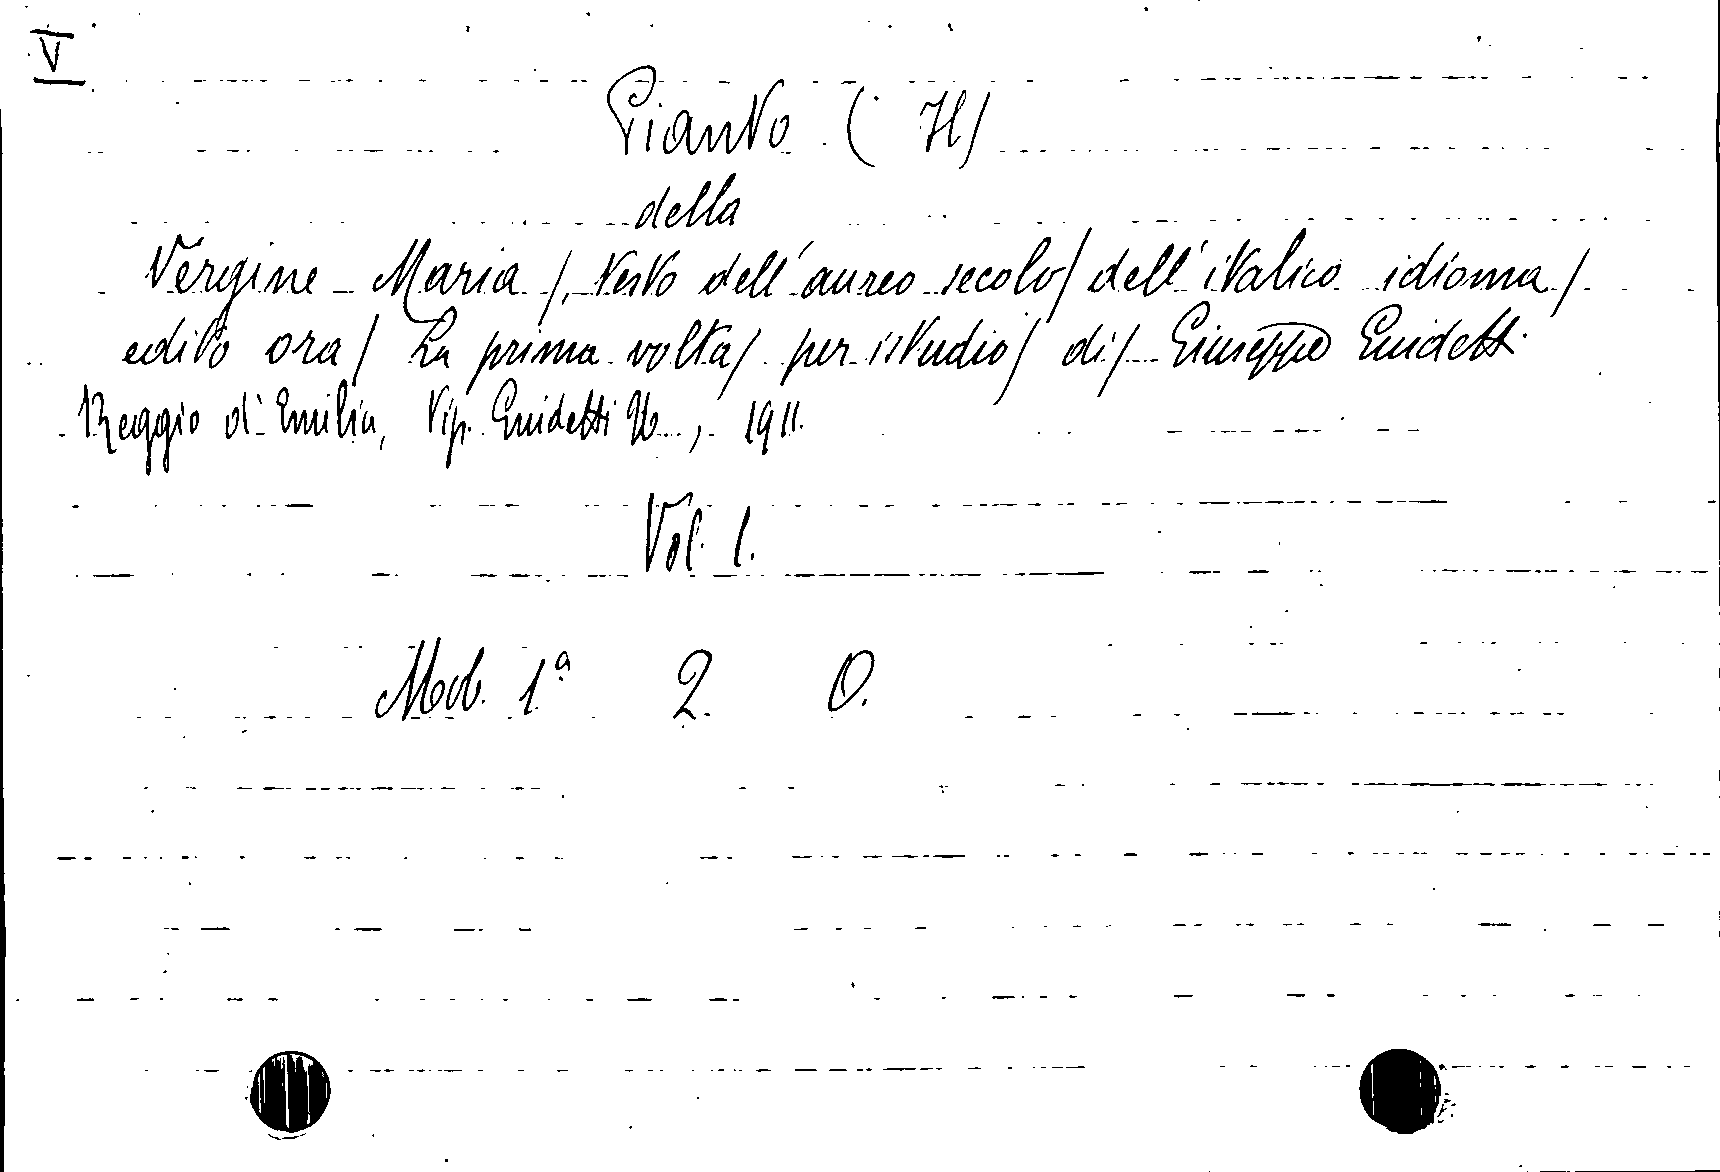 V
Pianto (Il)
della
Vergine Maria /, testo dell'aureo secolo/ dell'italico idioma/
edito ora/ La prima volta/ per istudio/ di/ Giuseppe Guidetti
Reggio di Emilia, Tip. Guidetti U., 1911.
Vol. 1.
Mob. 1ª 2. O.